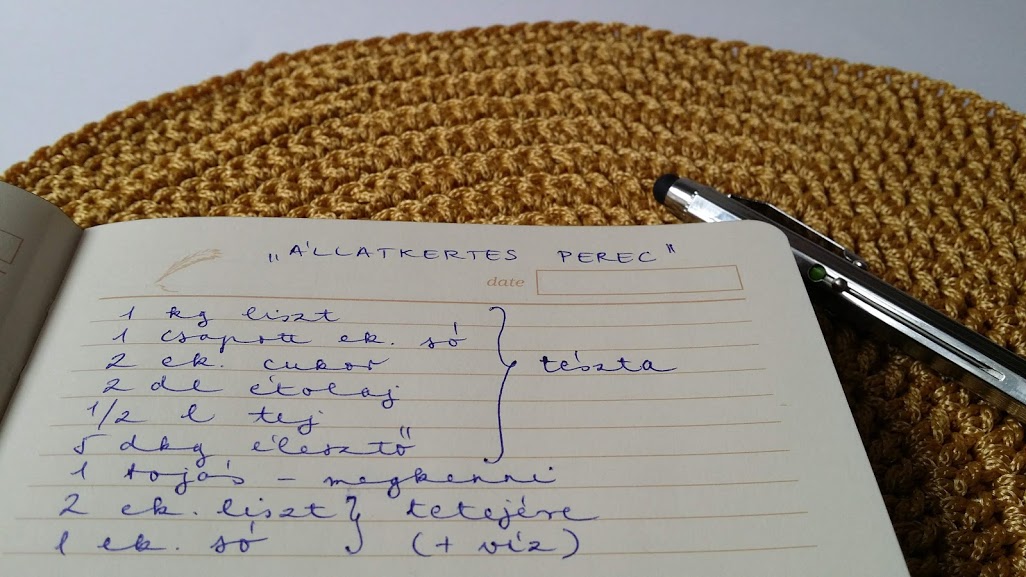 „ÁLLATKERTES PEREC"
date
1 kg liszt
1 csapott ek. só
2 ek. cukor
2 dl étolaj
1/2 l tej
5 dkg élesztő
tészta
1 tojás – megkenni
2 ek. liszt } tetejére
1 ek. só (+ víz)